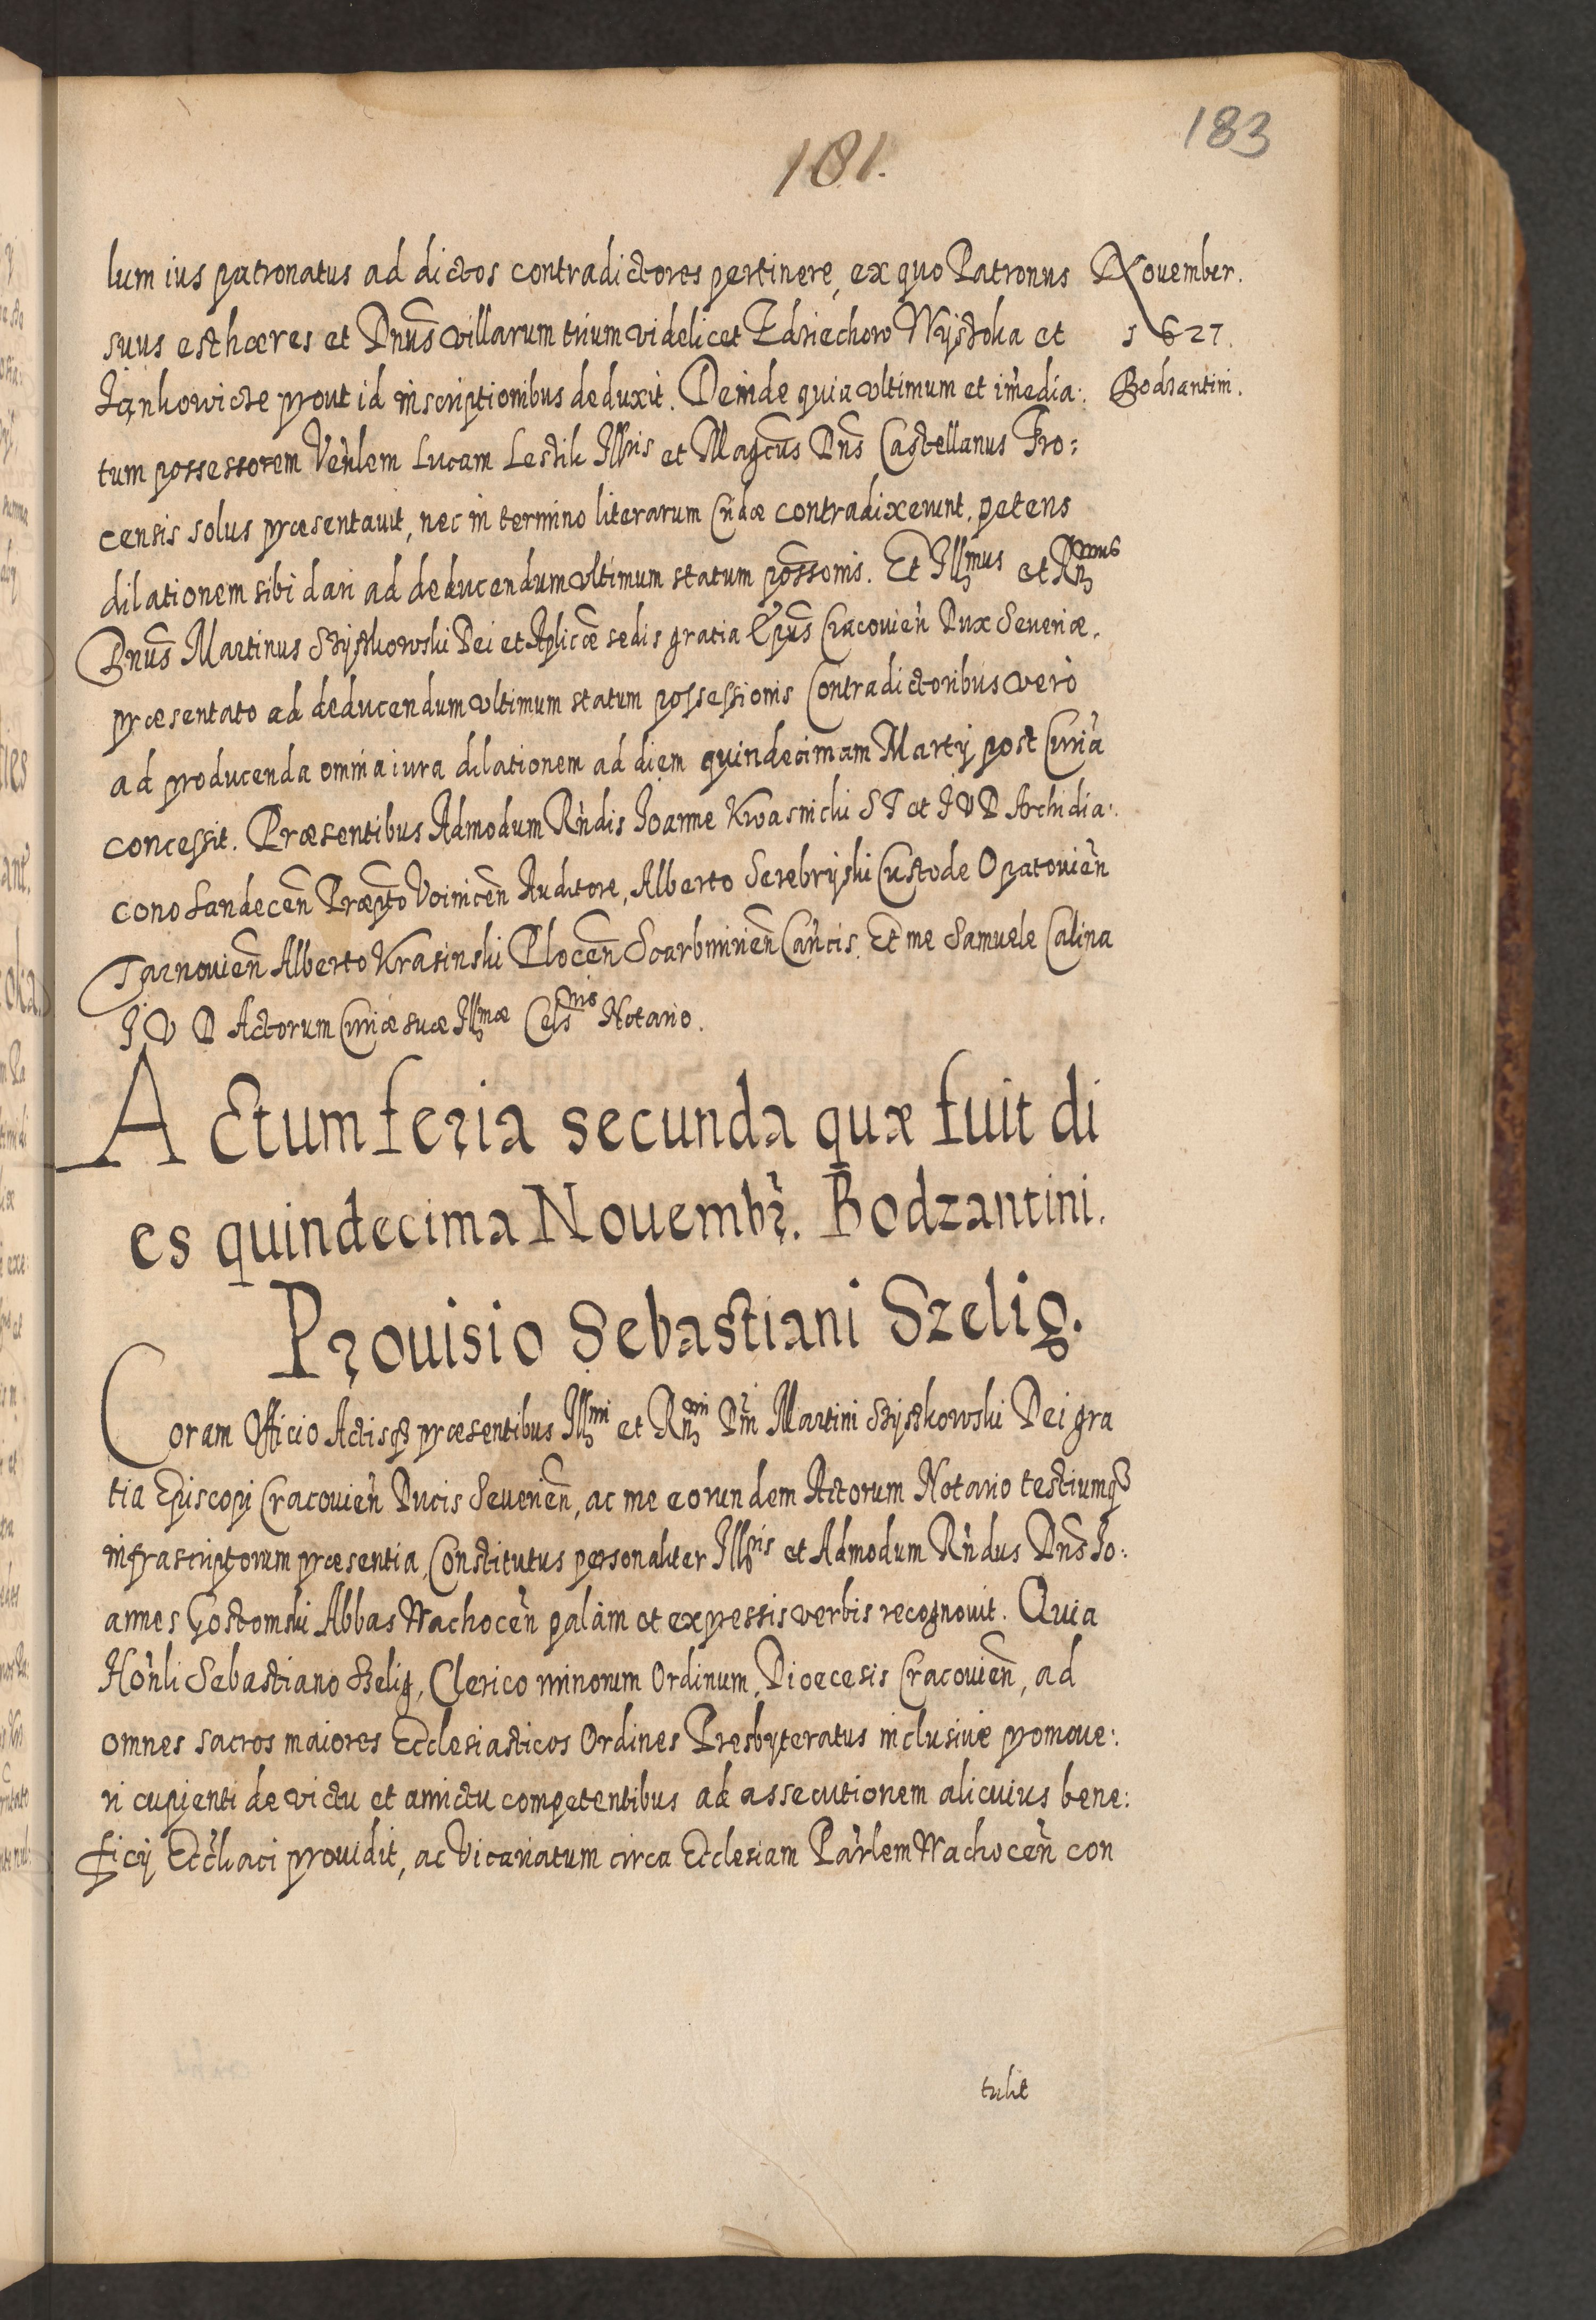 183
181.
lum ius patronatus ad dictos contradictores pertinere, ex quo Patronus
November.
suus est hæres et Dnūs villarum trium videlicet Zdziechow Wysoka et
1627.
Jankowicze prout id inscriptionibus deduxit. Deinde quia vltimum et im̃edia:
Bodzantini.
tum possessorem Ven̄lem Lucam Lestik Illris et Magcūs Dnūs Castellanus Fro:
censis solus præsentauit, nec in termino literarum Cridæ contradixerunt, petens
dilationem sibi dari ad deducendum vltimum statum possōnis. Et Illmus et Rñmus
Dnūs Martinus Szyszkowski Dei et Aplicæ sedis gratia Epūs Cracovien̄ Dux Seueriæ.
præsentato ad deducendum vltimum statum possessionis Contradictoribus verò
ad producenda omnia iura dilationem ad diem quindecimam Martij post Curia
concessit. Præsentibus Admodum Rn̄dis Joanne Kwasnicki S T et I V D Archidia:
cono Sandecen̄ Præpto Voinicen̄ Auditore, Alberto Serebryski Custode Opatovien̄
Tarnovien̄ Alberto Krasinski Plocen̄ Scarbimirien̄ Can̄cis. Et me Samuele Calina
I V D Actorum Curiæ suæ Illmæ Celsnis Notario.
Actum feria secunda quæ fuit di
es quindecima Nouembr̃. Bodzantini.
Prouisio Sebastiani Szelig.
Coram Officio Actisq3 præsentibus Illmi et Rñmi Dni Martini Szyszkowski Dei gra
tia Episcopi Cracovien̄ Ducis Seuerien̄, ac me eorundem Actorum Notario testiumq3
infrascriptorum præsentia, Constitutus personaliter Illris et Admodum Rn̄dus Dnūs Jo:
annes Gostomski Abbas Wachocen̄ palàm et expressis verbis recognouit. Quia
Hon̄li Sebastiano Szelig, Clerico minorum Ordinum, Dioecesis Cracovien̄, ad
omnes sacros maiores Ecclesiasticos Ordines Presbyteratus inclusiuè promoue:
ri cupienti de victu et amictu competentibus ad assecutionem alicuius bene:
ficij Ecc̄liaci prouidit, ac Vicariatum circa Ecclesiam Par̄lem Wachocen̄ con
tulit